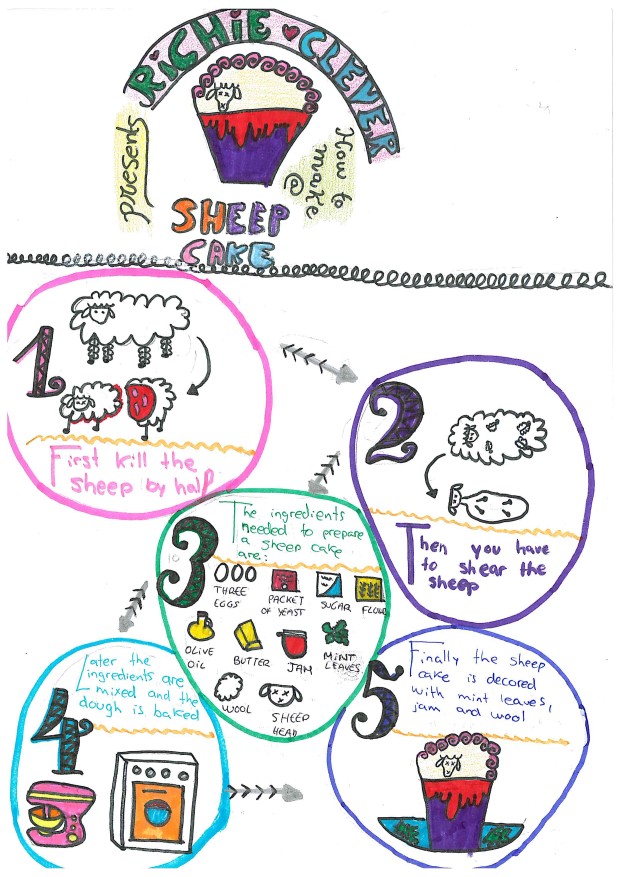 RiCHiE CLEVER
presents
How to
make
@
SHEEP
CAKE
1
First kill the
sheep by half
2
Then you have
to shear the
sheep
3
The ingredients
needed to prepare
a sheep cake
are:
THREE
EGGS
PACKET
OF YEAST
SUGAR
FLOUR
OLIVE
OIL
BUTTER
JAM
MINT
LEAVES
WOOL
SHEEP
HEAD
4
Later the
ingredients are
mixed and the
dough is baked
5
Finally the sheep
cake is decored
with mint leaves,
jam and wool